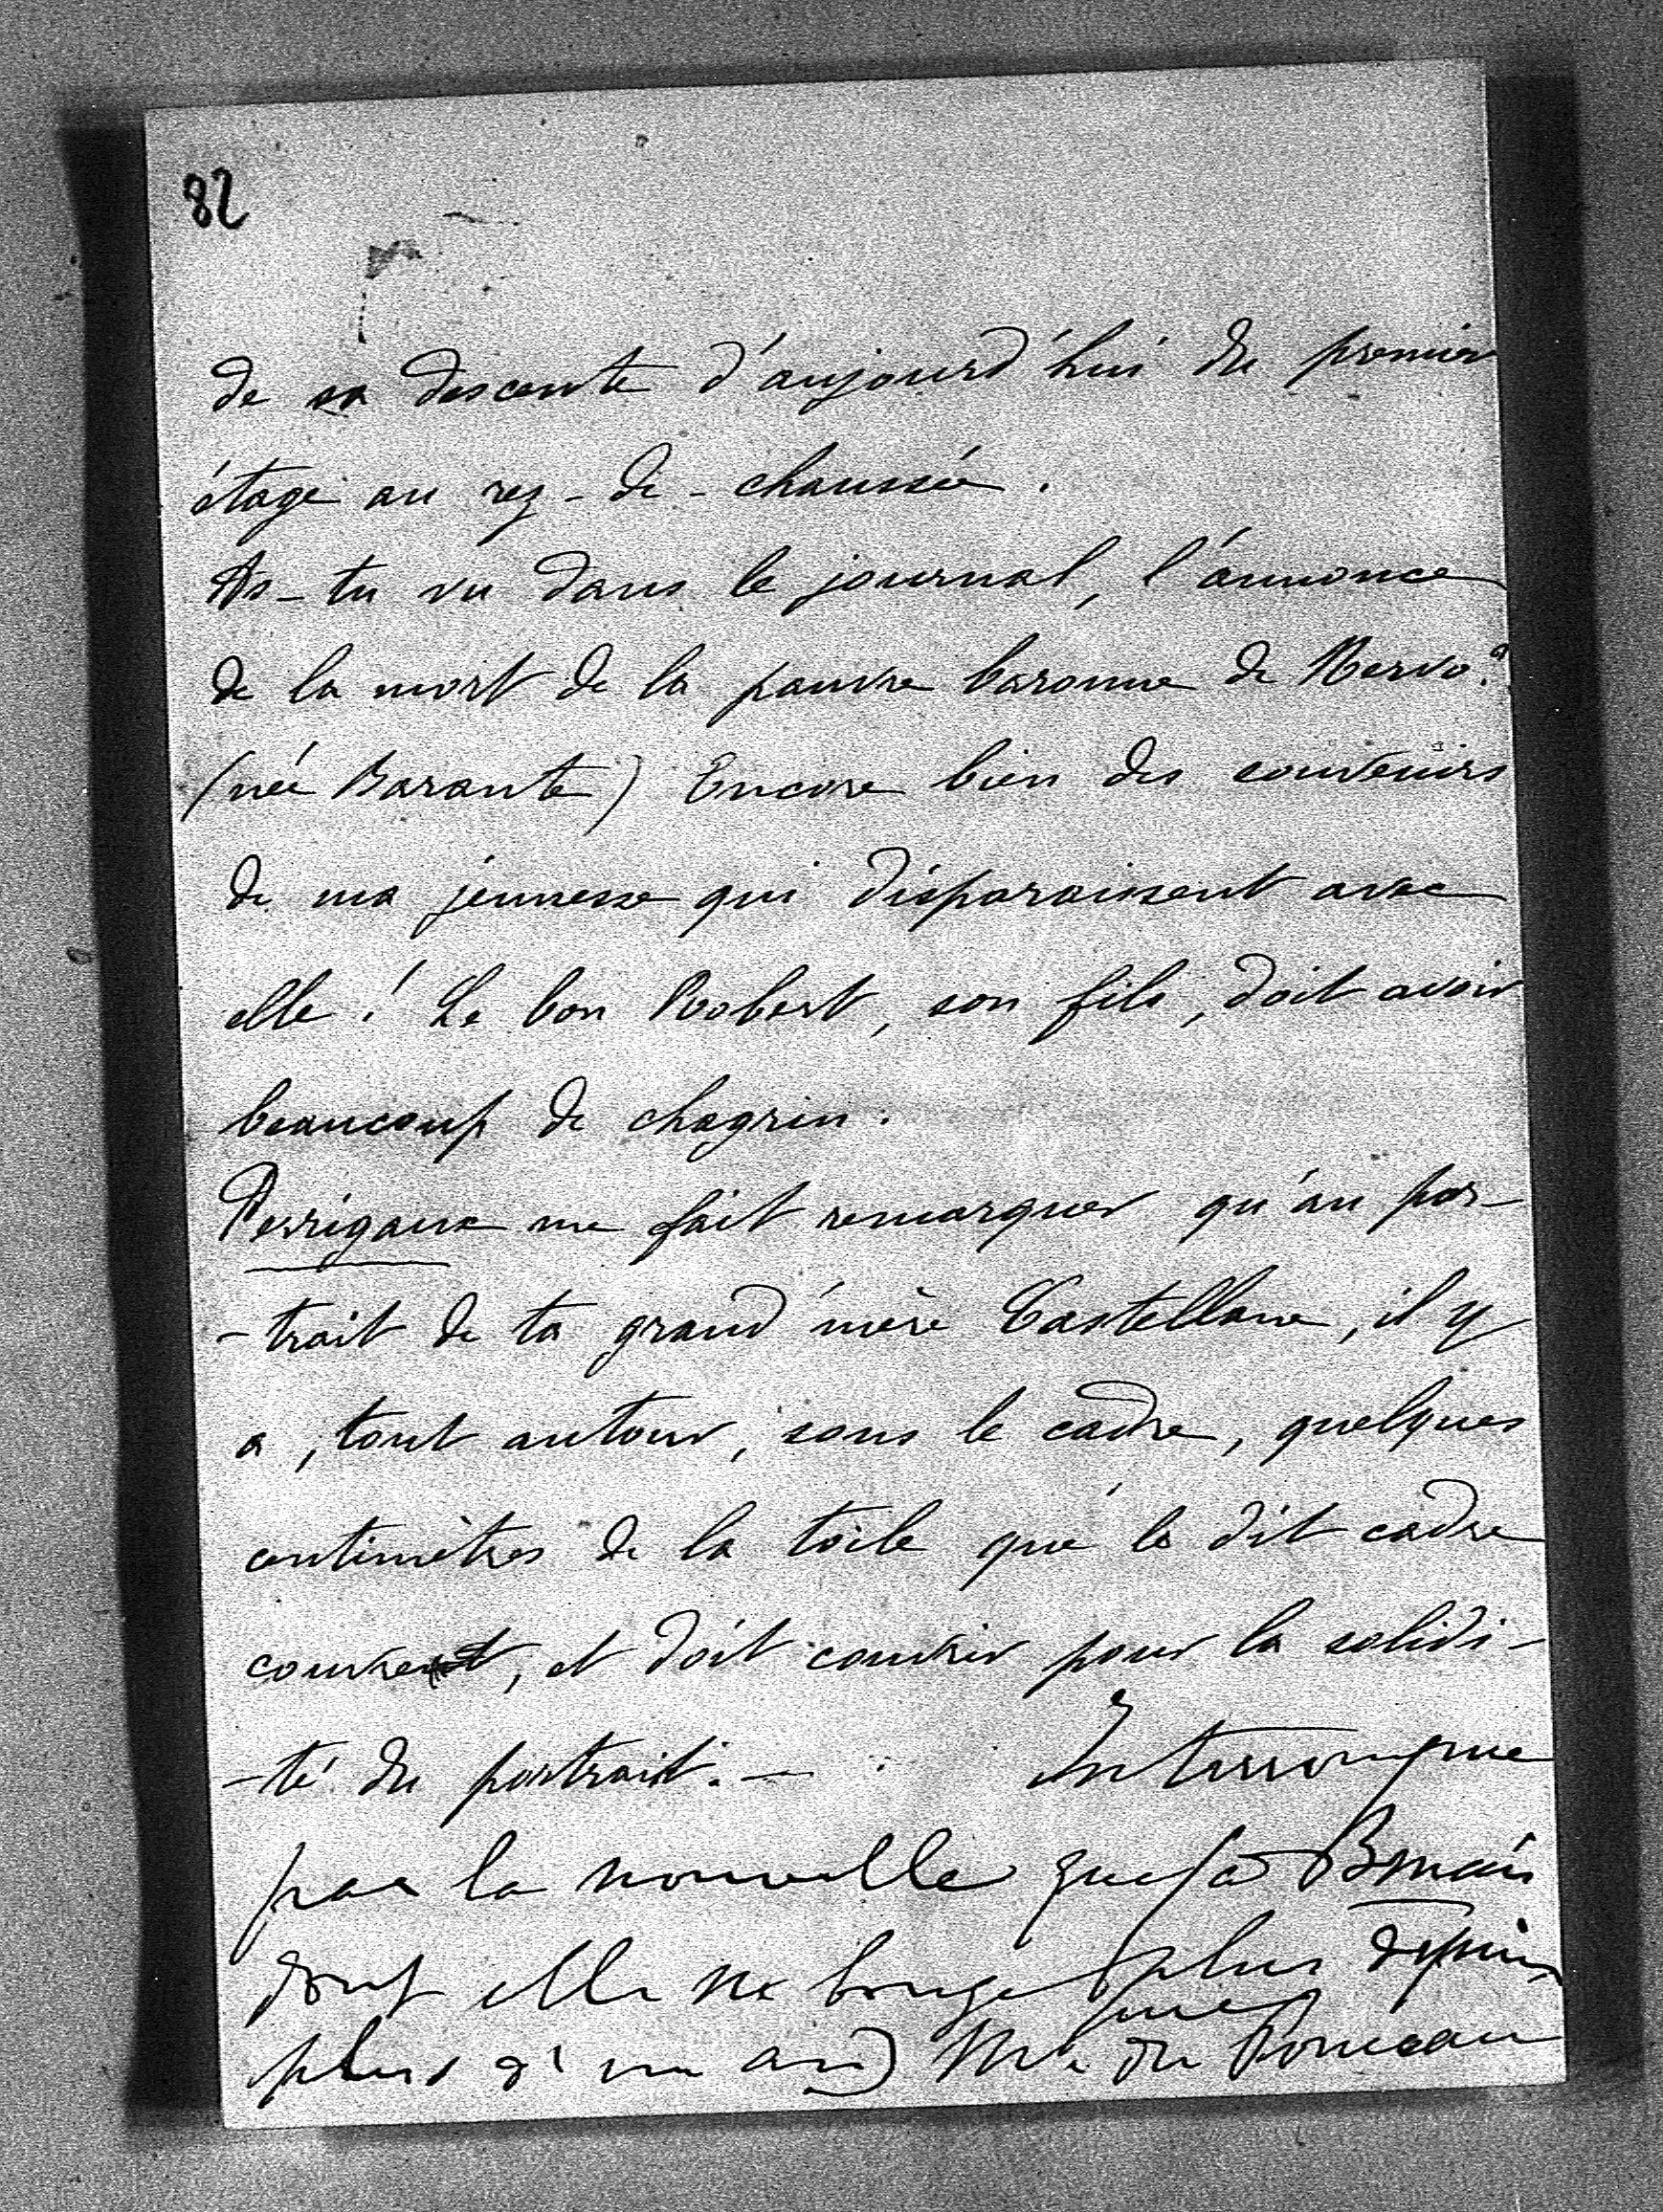 82
de sa descente d'aujourd'hui du premier
étage au rez-de-chaussée.
As-tu vu dans le journal, l'annonce
de la mort de la pauvre baronne de Nervo?
(née Barante) Encore bien des souvenirs
de ma jeunesse qui disparaissent avec
elle! Le bon Robert, son fils, doit avoir
beaucoup de chagrin.
Perrigaux me fait remarquer qu'au por-
-trait de ta grand'mère Castellane, il y
a, tout autour, sous le cadre, quelques
centimètres de la toile que le dit cadre
couvre, et doit couvrir pour la solidi-
-té du portrait. — Interrompue
par la nouvelle que (à
dont elle ne bouge plus depuis
plus d'un an) Me du Ponceau